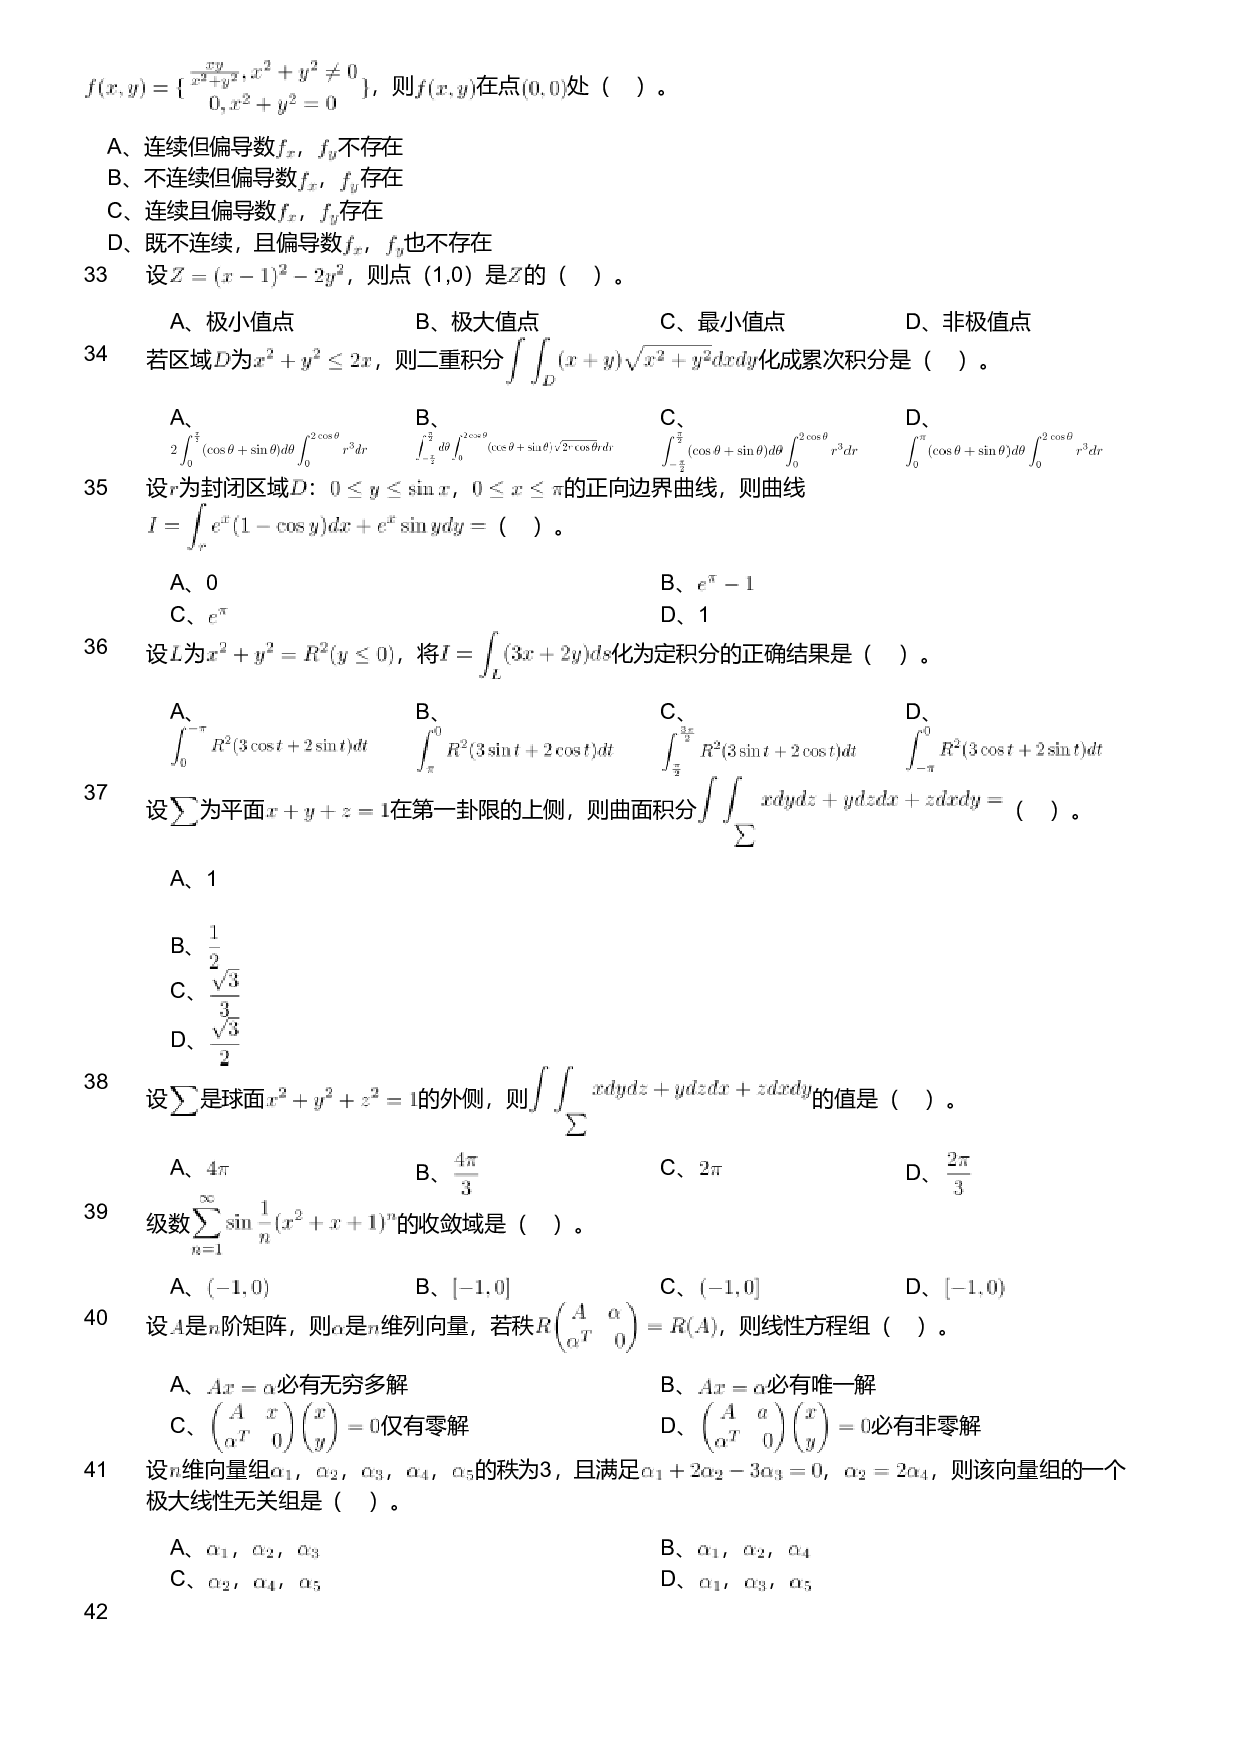 f(x,y) = { xy/(x²+y²), x² + y² ≠ 0; 0, x² + y² = 0 }，则f(x,y)在点(0,0)处（ ）。
A、连续但偏导数fₓ，f_y不存在
B、不连续但偏导数fₓ，f_y存在
C、连续且偏导数fₓ，f_y存在
D、既不连续，且偏导数fₓ，f_y也不存在
33 设Z = (x − 1)² − 2y²，则点（1,0）是Z的（ ）。
A、极小值点 B、极大值点 C、最小值点 D、非极值点
34 若区域D为x² + y² ≤ 2x，则二重积分∫∫_D (x + y)√(x² + y²)dxdy化成累次积分是（ ）。
A、 B、 C、 D、
2∫_0^{π/2}(cos θ + sin θ)dθ∫_0^{2 cos θ} r³dr ∫_{−π/2}^{π/2} dθ∫_0^{2 cos θ}(cos θ + sin θ)√(2r cos θ)rdr ∫_{−π/2}^{π/2}(cos θ + sin θ)dθ∫_0^{2 cos θ} r³dr ∫_0^π(cos θ + sin θ)dθ∫_0^{2 cos θ} r³dr
35 设r为封闭区域D：0 ≤ y ≤ sin x，0 ≤ x ≤ π的正向边界曲线，则曲线
I = ∫_r eˣ(1 − cos y)dx + eˣ sin ydy =（ ）。
A、0 B、e^π − 1
C、e^π D、1
36 设L为x² + y² = R²(y ≤ 0)，将I = ∫_L (3x + 2y)ds化为定积分的正确结果是（ ）。
A、 B、 C、 D、
∫_0^{−π} R²(3 cos t + 2 sin t)dt ∫_π^0 R²(3 sin t + 2 cos t)dt ∫_{π/2}^{3π/2} R²(3 sin t + 2 cos t)dt ∫_{−π}^0 R²(3 cos t + 2 sin t)dt
37 设∑为平面x + y + z = 1在第一卦限的上侧，则曲面积分∫∫_∑ xdydz + ydzdx + zdxdy =（ ）。
A、1
B、1/2
C、√3/3
D、√3/2
38 设∑是球面x² + y² + z² = 1的外侧，则∫∫_∑ xdydz + ydzdx + zdxdy的值是（ ）。
A、4π B、4π/3 C、2π D、2π/3
39 级数∑_{n=1}^∞ sin 1/n (x² + x + 1)ⁿ的收敛域是（ ）。
A、(−1,0) B、[−1,0] C、(−1,0] D、[−1,0)
40 设A是n阶矩阵，则α是n维列向量，若秩R(A α; αᵀ 0) = R(A)，则线性方程组（ ）。
A、Ax = α必有无穷多解 B、Ax = α必有唯一解
C、(A x; αᵀ 0)(x; y) = 0仅有零解 D、(A a; αᵀ 0)(x; y) = 0必有非零解
41 设n维向量组α₁，α₂，α₃，α₄，α₅的秩为3，且满足α₁ + 2α₂ − 3α₃ = 0，α₂ = 2α₄，则该向量组的一个
极大线性无关组是（ ）。
A、α₁，α₂，α₃ B、α₁，α₂，α₄
C、α₂，α₄，α₅ D、α₁，α₃，α₅
42